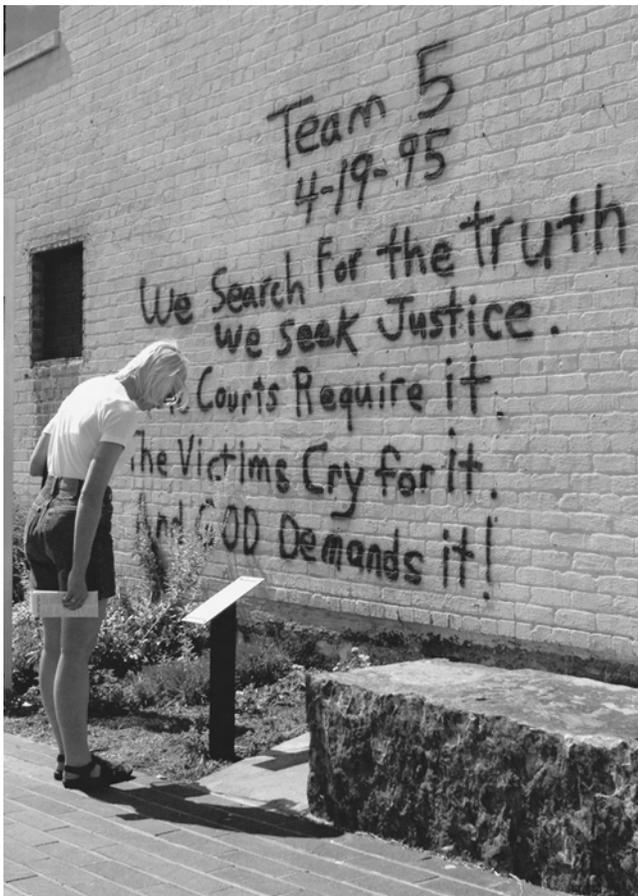 Team 5
4-19-95
We Search For the truth
We Seek Justice.
Courts Require it.
The Victims Cry for it.
And GOD Demands it!